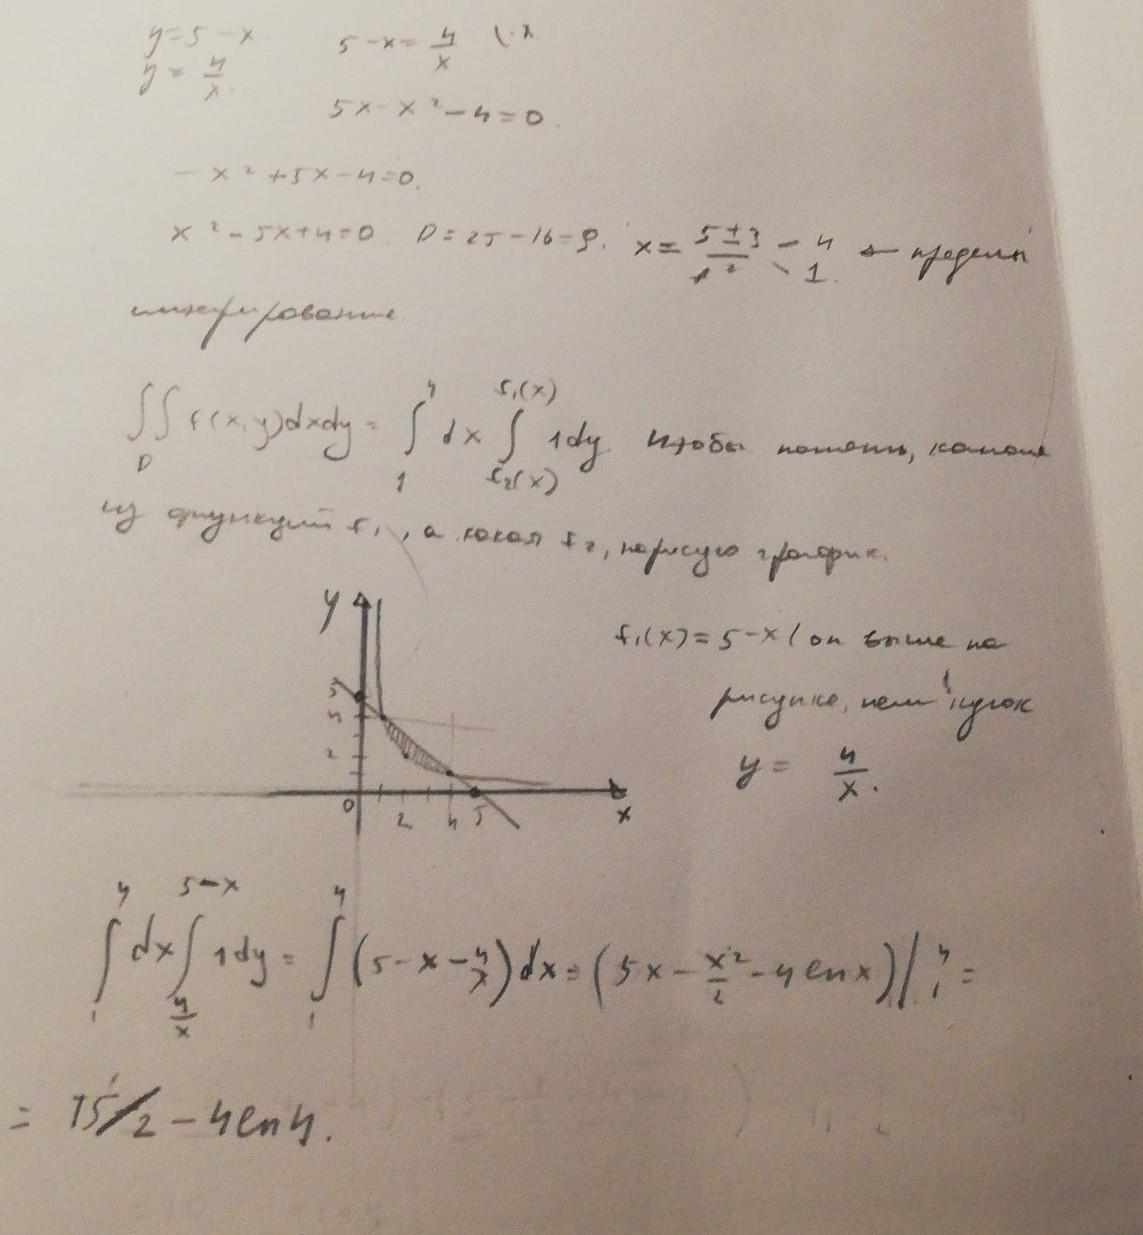 y=5-x    5-x=4/x  |·x
y=4/x.
5x-x²-4=0.
-x²+5x-4=0.
x²-5x+4=0  D=25-16=9.  x=(5±3)/2 - 4 \ 1. ← пределы
интегрирование.
∬_D f(x,y)dxdy = ∫_1^4 dx ∫_{f₂(x)}^{f₁(x)} 1dy. Чтобы понять, какая
из функций f₁, а какая f₂, нарисую график.
y
f₁(x)=5-x (он выше на
рисунке, чем кусок
y=4/x.
5
2
0 2 4 5 x
∫_1^4 dx ∫_{4/x}^{5-x} 1dy = ∫_1^4 (5-x-4/x)dx = (5x-x²/2-4lnx)|_1^4 =
= 15/2-4ln4.